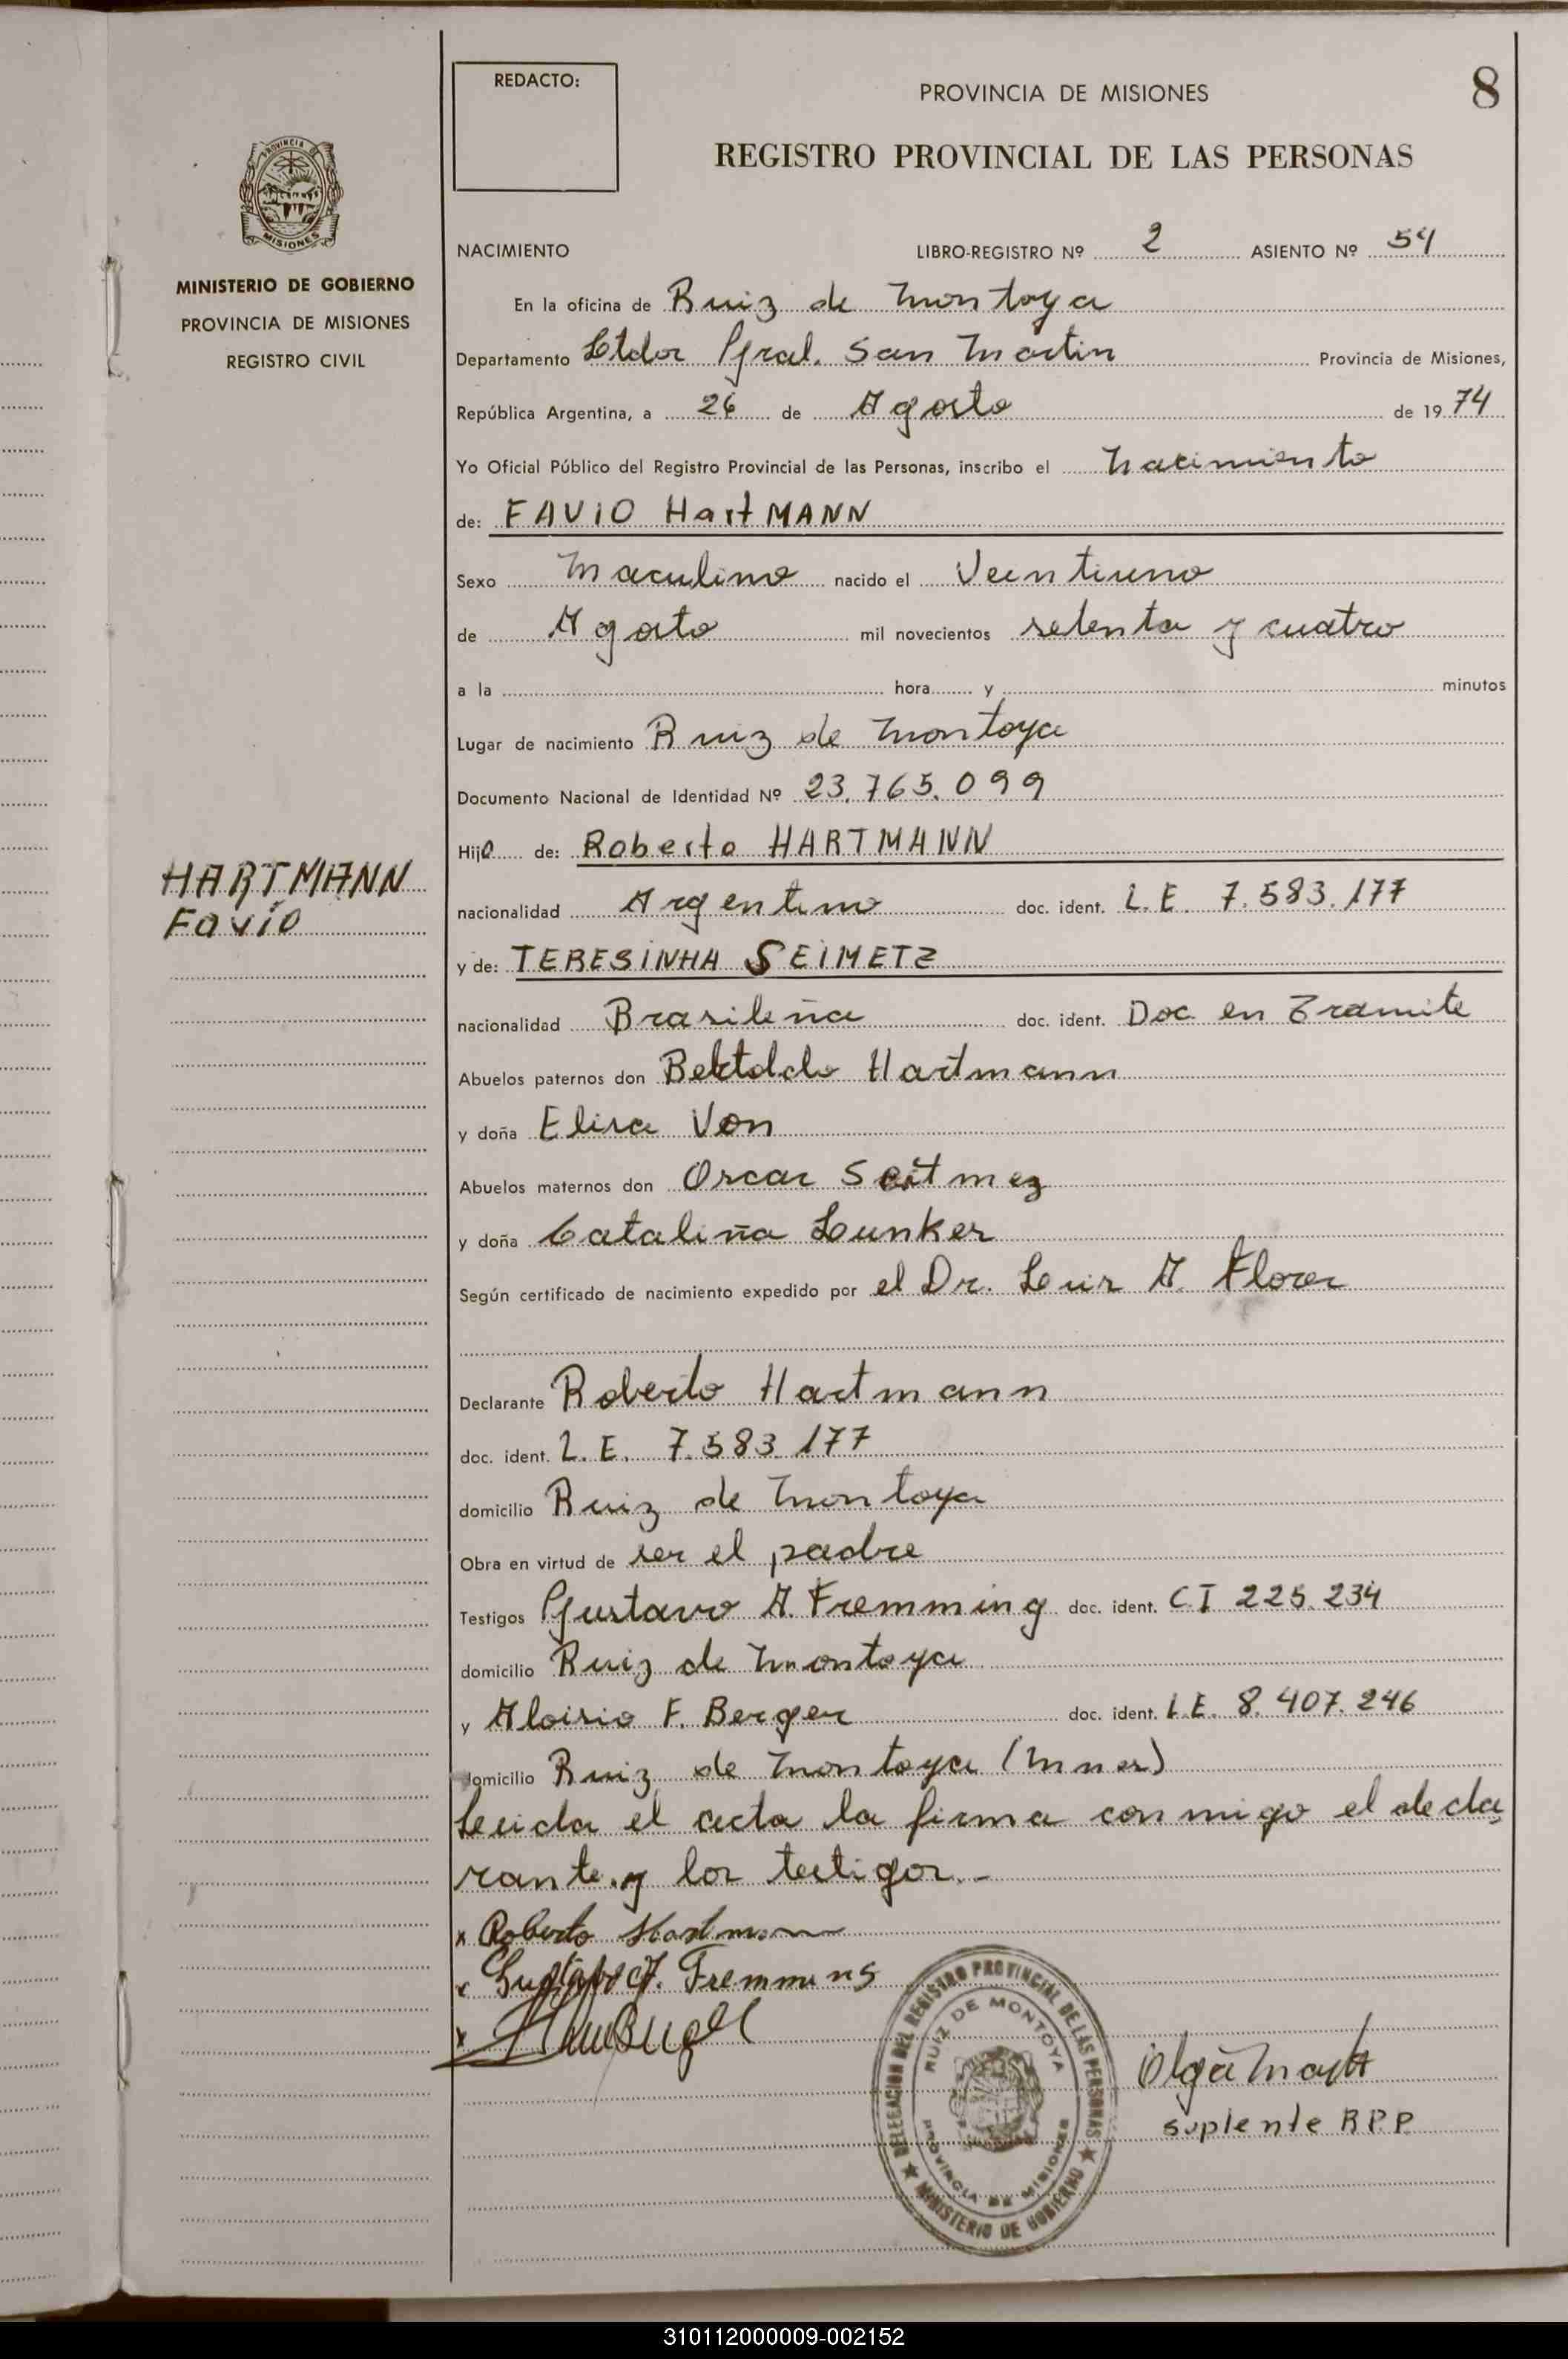 REDACTO:
PROVINCIA DE MISIONES
8
REGISTRO PROVINCIAL DE LAS PERSONAS
PROVINCIA DE
MISIONES
MINISTERIO DE GOBIERNO
PROVINCIA DE MISIONES
REGISTRO CIVIL
NACIMIENTO LIBRO-REGISTRO Nº 2 ASIENTO Nº 54
En la oficina de Ruiz de Montoya
Departamento Ltdor Gral. San Martin Provincia de Misiones,
República Argentina, a 26 de Agosto de 1974
Yo Oficial Público del Registro Provincial de las Personas, inscribo el nacimiento
de: FAVIO HartMANN
Sexo Maculino nacido el Veintiuno
de Agosto mil novecientos setenta y cuatro
a la hora y minutos
Lugar de nacimiento Ruiz de Montoya
Documento Nacional de Identidad Nº 23.765.099
Hijo de: Roberto HARTMANN
HARTMANN
Favio
nacionalidad Argentino doc. ident. L.E. 7.583.177
y de: TERESINHA SEIMETZ
nacionalidad Brasileña doc. ident. Doc en Tramite
Abuelos paternos don Bektoldo Hartmann
y doña Elisa Von
Abuelos maternos don Oscar Seitmez
y doña Cataliña Lunker
Según certificado de nacimiento expedido por el Dr. Luis A. Flores
Declarante Roberto Hartmann
doc. ident. L.E. 7.583.177
domicilio Ruiz de Montoya
Obra en virtud de ser el padre
Testigos Gustavo A. Fremming doc. ident. C.I 225.234
domicilio Ruiz de Montoya
y Aloisio F. Berger doc. ident. L.E. 8.407.246
domicilio Ruiz de Montoya (Mnes)
Leida el acta la firma conmigo el decla
rante y los testigos.-
x Roberto Hartmann
x Gustavo A. Fremming
x
DELEGACION DEL REGISTRO PROVINCIAL DE LAS PERSONAS
RUIZ DE MONTOYA
PROVINCIA DE MISIONES
★ MINISTERIO DE GOBIERNO ★
Olga
suplente R.P.P.
310112000009-002152